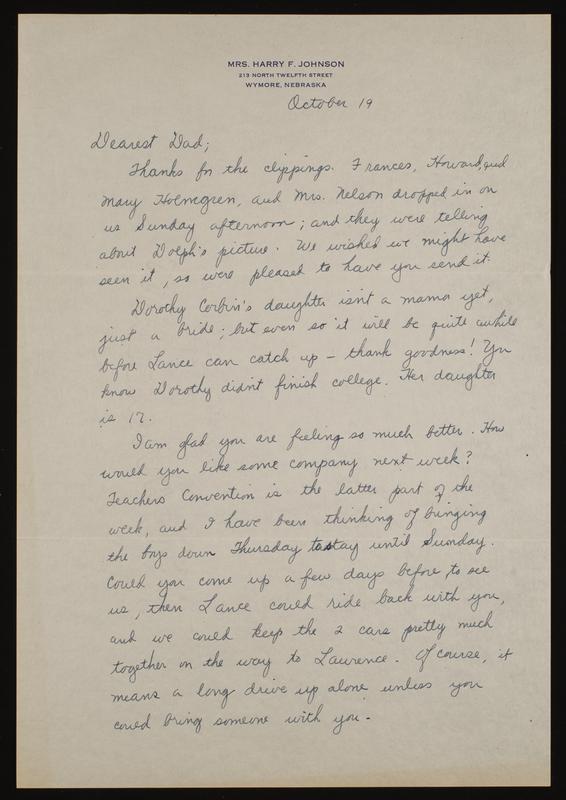 MRS. HARRY F. JOHNSON
213 NORTH TWELFTH STREET
WYMORE, NEBRASKA
October 19
Dearest Dad;
Thanks for the clippings. Frances, Howard, and
Mary Holmgren, and Mrs. Nelson dropped in on
us Sunday afternoon; and they were telling
about Dolph's picture. We wished we might have
seen it, so were pleased to have you send it.
Dorothy Corbin's daughter isn't a mama yet,
just a bride; but even so it will be quite awhile
before Lance can catch up - thank goodness! You
know Dorothy didn't finish college. Her daughter
is 17.
I am glad you are feeling so much better. How
would you like some company next week?
Teachers Convention is the latter part of the
week, and I have been thinking of bringing
the boys down Thursday to stay until Sunday.
Could you come up a few days before, to see
us, then Lance could ride back with you,
and we could keep the 2 cars pretty much
together on the way to Lawrence. Of course, it
means a long drive up alone unless you
could bring someone with you.